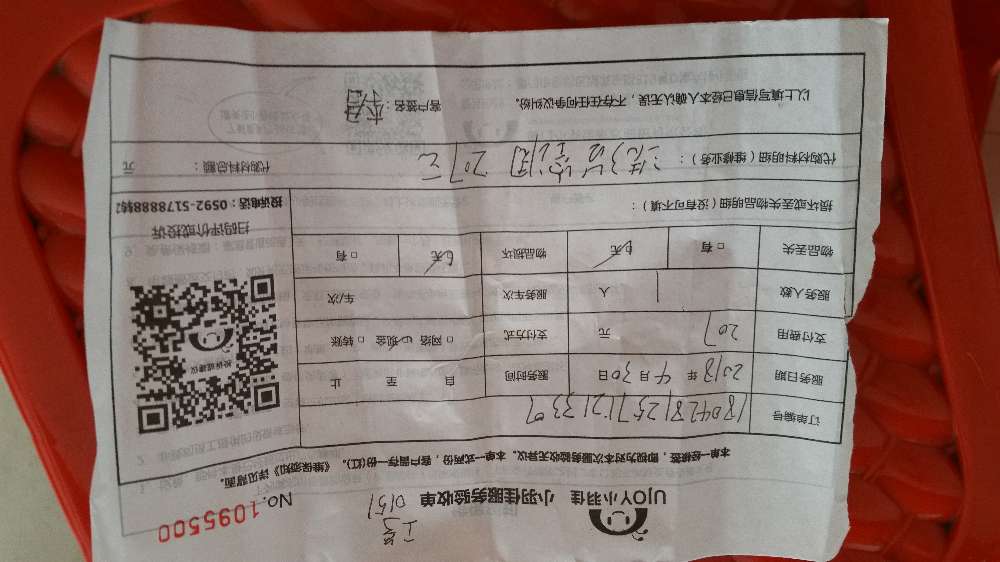 UJOY小羽佳 小羽佳服务验收单
No. 1095500
0151
本单一经签签,即视为对本次服务验收无异议。本单一式两份,客户留存一份(红)。《维保须知》详见背面。
订单编号
服务日期 2018 年 4 月 30 日 服务时间 自 至 止
支付费用 207 元 支付方式 □ 网络 □ 现金 □ 转账
服务人数 1 人 服务车次 车/次
物品丢失 □ 有 □ 无 物品损坏 □ 有 □ 无
损坏或丢失物品明细(没有可不填):
投诉或建议
扫码评价或投诉
投诉电话:0592-5178888转
代购材料明细(维修业务): 207元
代购材料总额: 元
以上填写信息已经本人确认无误,不存在任何争议纠纷。 客户签名: